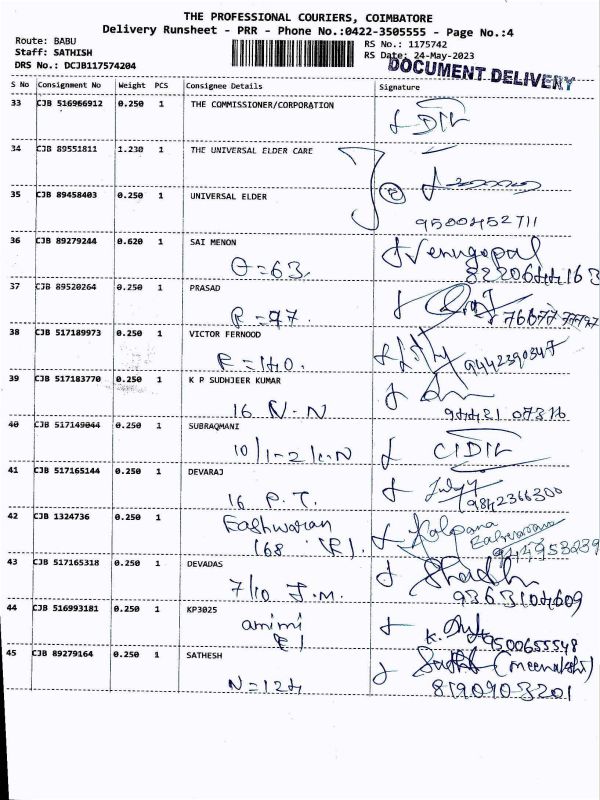 THE PROFESSIONAL COURIERS, COIMBATORE
Delivery Runsheet - PRR - Phone No.:0422-3505555 - Page No.:4
Route: BABU
RS No.: 1175742
Staff: SATHISH
RS Date: 24-May-2023
DRS No.: DCJB117574204
DOCUMENT DELIVERY
S No Consignment No Weight PCS Consignee Details Signature
33 CJB 516966912 0.250 1 THE COMMISSIONER/CORPORATION
34 CJB 89551811 1.230 1 THE UNIVERSAL ELDER CARE
35 CJB 89458403 0.250 1 UNIVERSAL ELDER
9500452711
36 CJB 89279244 0.620 1 SAI MENON Venugopal
O=63 8220644163
37 CJB 89520264 0.250 1 PRASAD
R=97
38 CJB 517189973 0.250 1 VICTOR FERNOOD
R=140. 9442390347
39 CJB 517183770 0.250 1 K P SUDHJEER KUMAR
16 N-N
40 CJB 517149044 0.250 1 SUBRAQMANI
10/1-2 K.N
41 CJB 517165144 0.250 1 DEVARAJ
16 P.T. 9842366300
42 CJB 1324736 0.250 1 Eashwaran Kalpana
168 (R). 944953239
43 CJB 517165318 0.250 1 DEVADAS
7/10 J.M. 9363104609
44 CJB 516993181 0.250 1 KP3025
9500655548
45 CJB 89279164 0.250 1 SATHESH (meenakshi)
N=124 8190903201